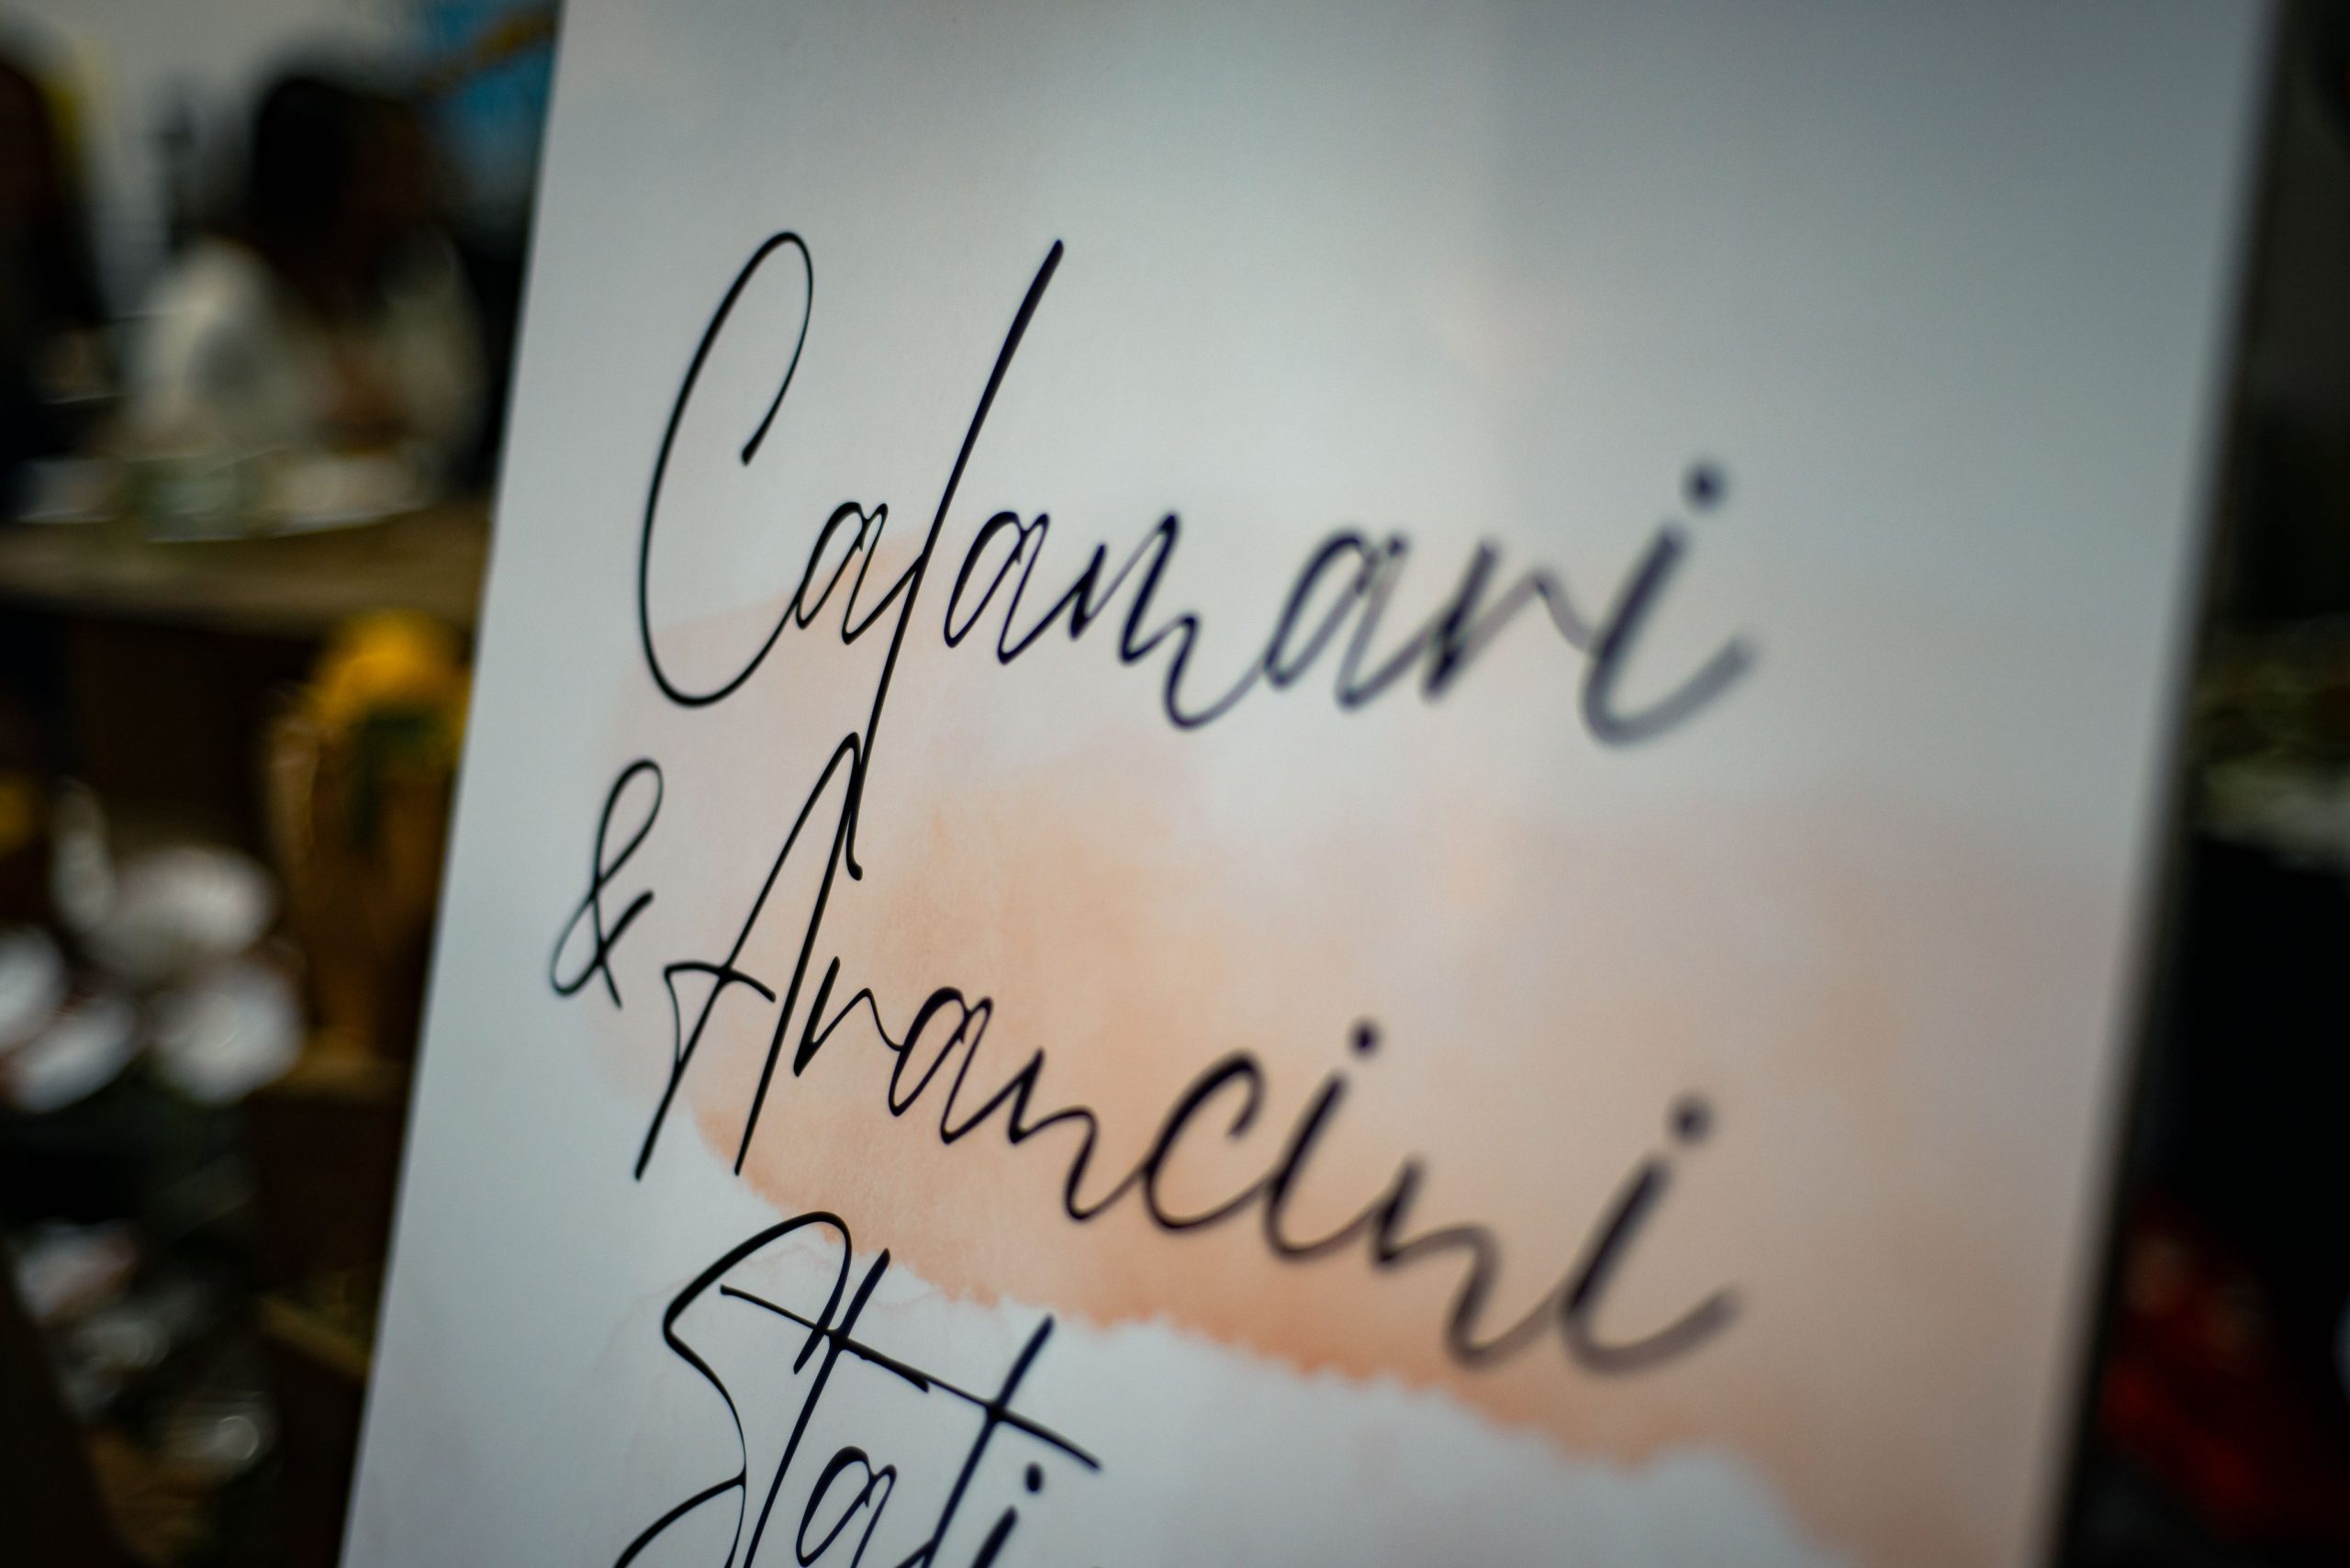 Calamari
& Arancini
Stati